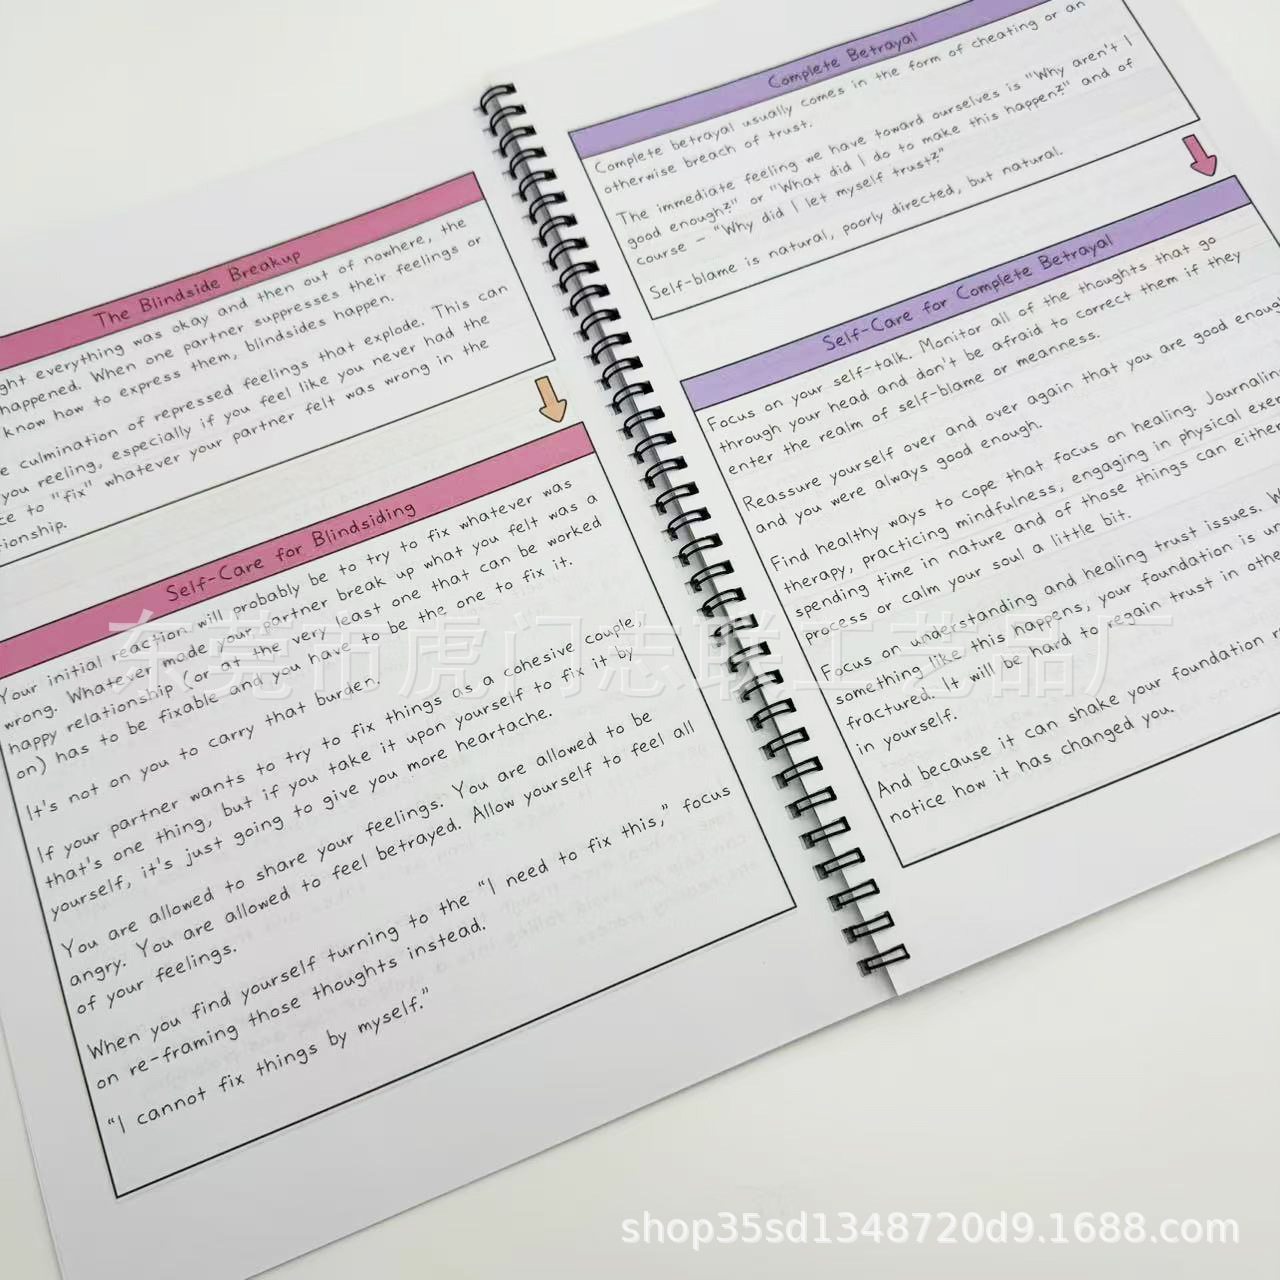 The Blindside Breakup
everything was okay and then out of nowhere, the
happened. When one partner suppresses their feelings or
know how to express them, blindsides happen.
culmination of repressed feelings that explode. This can
you reeling, especially if you feel like you never had the
to "fix" whatever your partner felt was wrong in the
Self-Care for Blindsiding
Your initial reaction will probably be to try to fix whatever was
wrong. Whatever made your partner break up what you felt was a
happy relationship (or at the very least one that can be worked
on) has to be fixable and you have to be the one to fix it.
It's not on you to carry that burden.
If your partner wants to try to fix things as a cohesive couple,
that's one thing, but if you take it upon yourself to fix it by
yourself, it's just going to give you more heartache.
You are allowed to share your feelings. You are allowed to be
angry. You are allowed to feel betrayed. Allow yourself to feel all
of your feelings.
When you find yourself turning to the "I need to fix this," focus
on re-framing those thoughts instead.
"I cannot fix things by myself."
Complete Betrayal
Complete betrayal usually comes in the form of cheating or an
otherwise breach of trust.
The immediate feeling we have toward ourselves is "Why aren't I
good enough?" or "What did I do to make this happen?" and of
course - "Why did I let myself trust?"
Self-blame is natural, poorly directed, but natural.
Self-Care for Complete Betrayal
Focus on your self-talk. Monitor all of the thoughts that go
through your head and don't be afraid to correct them if they
enter the realm of self-blame or meanness.
Reassure yourself over and over again that you are good
and you were always good enough.
Find healthy ways to cope that focus on healing.
therapy, practicing mindfulness, engaging in physical
spending time in nature and of those things can either
process or calm your soul a little bit.
Focus on understanding and healing trust issues.
something like this happens, your foundation is
fractured. It will be hard to regain trust in
in yourself.
And because it can shake your foundation
notice how it has changed you.
东莞市虎门志联工艺品厂
shop35sd1348720d9.1688.com